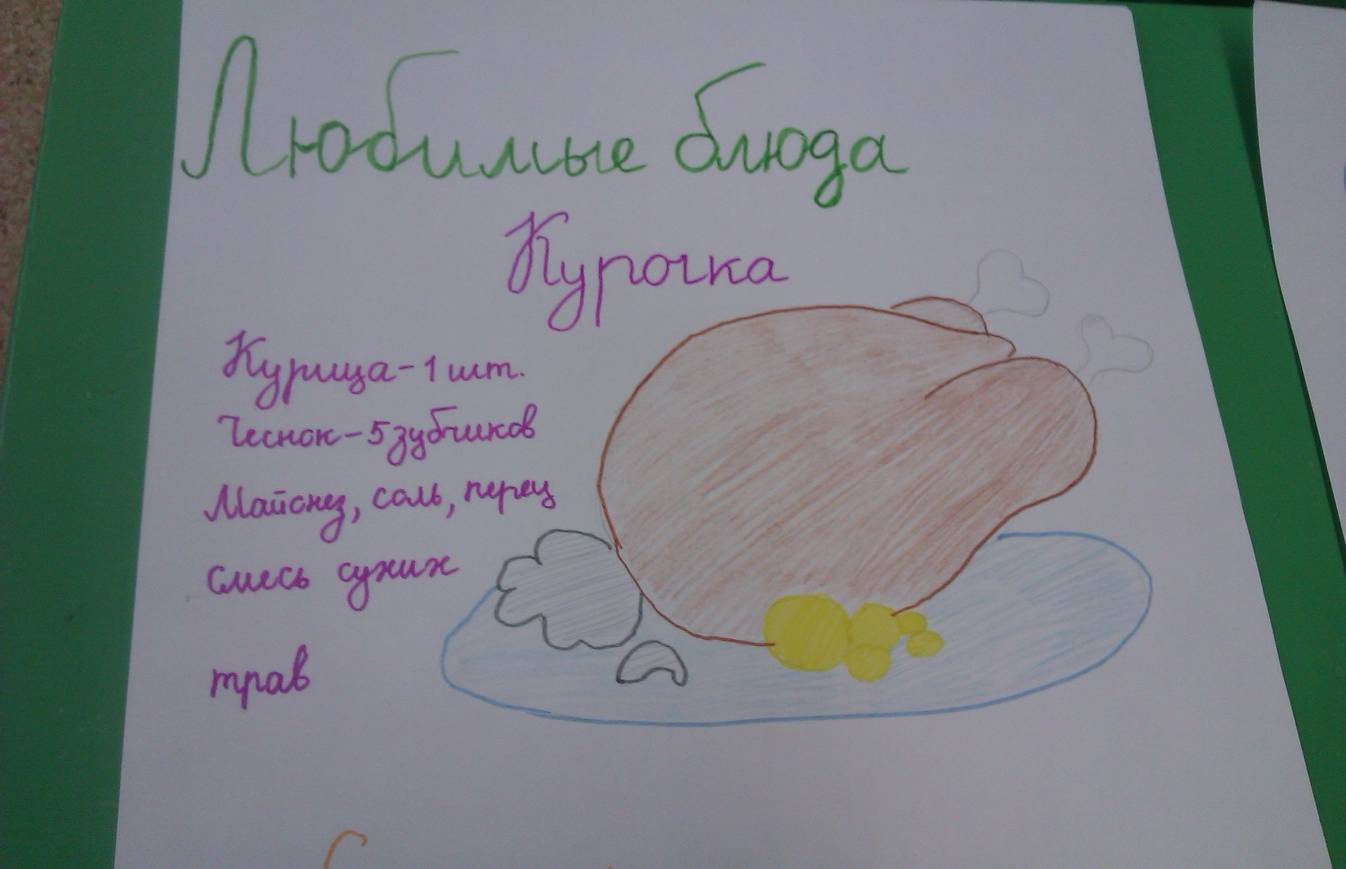 Любимые блюда
Курочка
Курица - 1 шт.
Чеснок - 5 зубчиков
Майонез, соль, перец
смесь сухих
трав